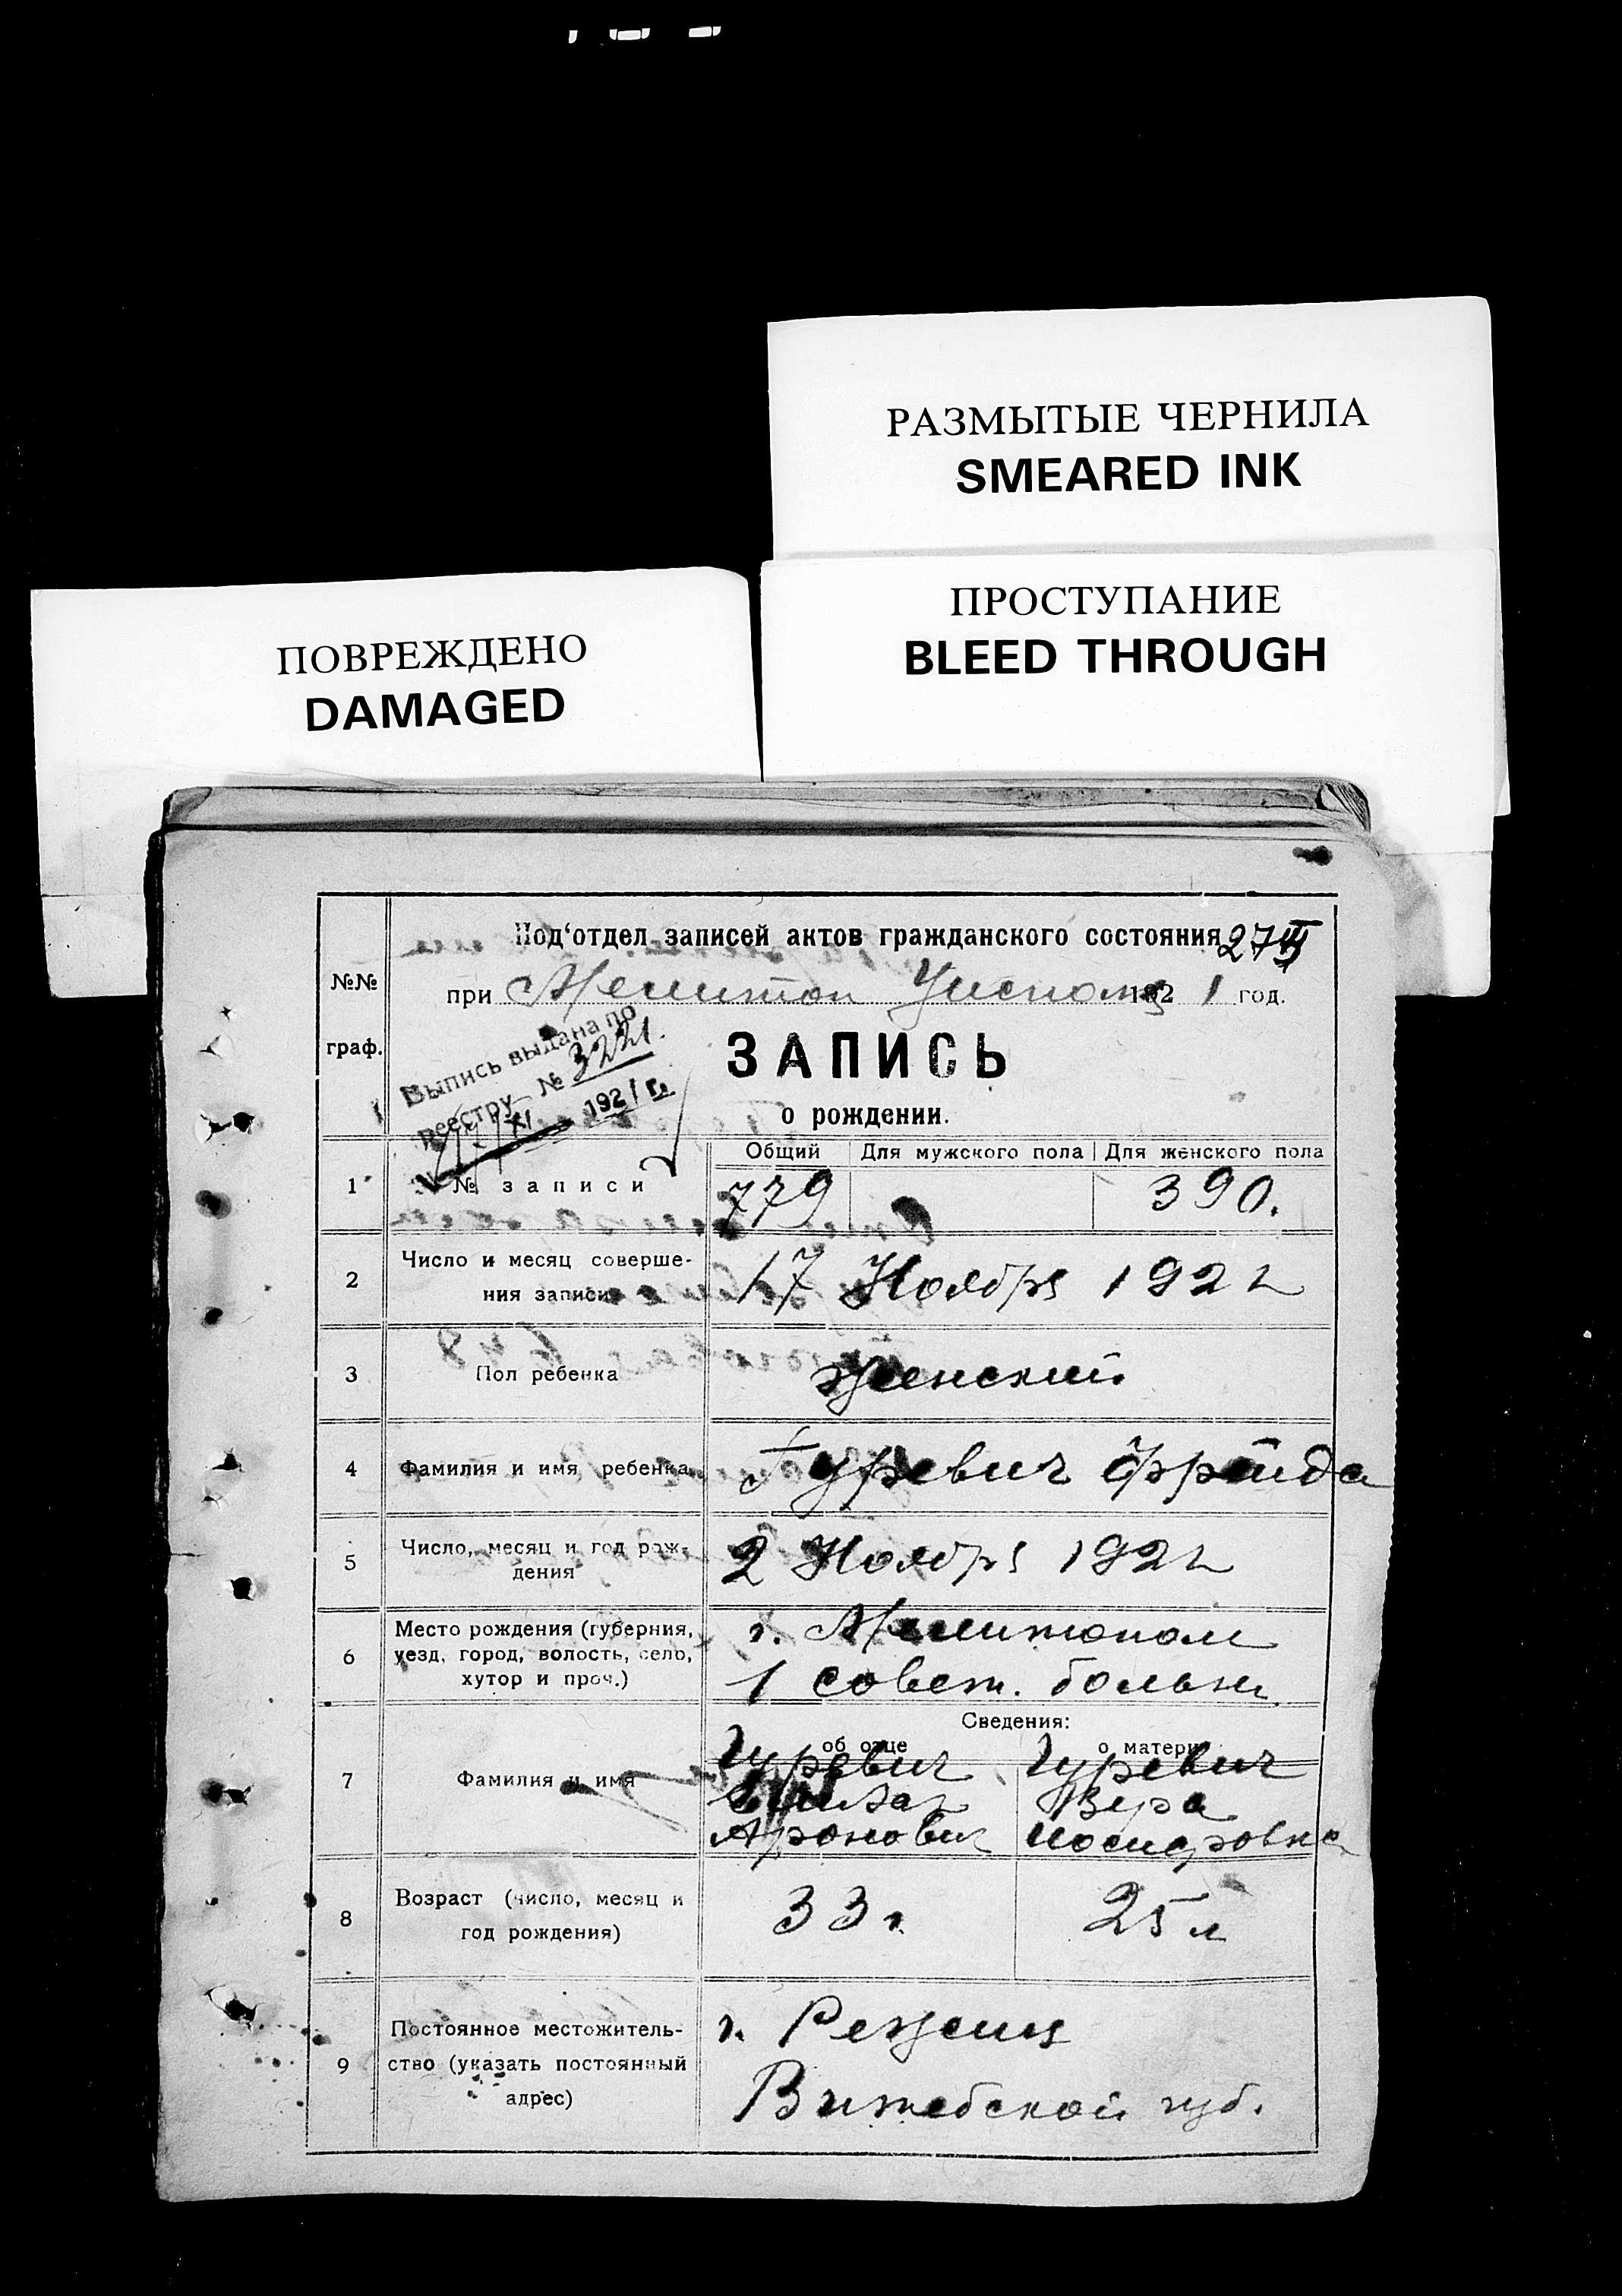 РАЗМЫТЫЕ ЧЕРНИЛА
SMEARED INK
ПРОСТУПАНИЕ
BLEED THROUGH
ПОВРЕЖДЕНО
DAMAGED
Под‘отдел записей актов гражданского состояния
№№
граф.
при 192 1 год.
Выпись выдана по
реестру № 3221.
1921 г.
ЗАПИСЬ
о рождении.
Общий Для мужского пола Для женского пола
1 № записи 779 390.
2 Число и месяц соверше-
ния записи 17 Ноября 192
3 Пол ребенка женский
4 Фамилия и имя ребенка Гуревич Фрейда
5 Число, месяц и год рож-
дения 2 Ноября 192
6 Место рождения (губерния,
уезд, город, волость, село,
хутор и проч.)
г.
1 совет. больн.
Сведения:
об отце о матери
7 Фамилия и имя
Гуревич Гуревич
Вера
Аронович Иосифовна
8 Возраст (число, месяц и
год рождения) 33 г 25 л
9 Постоянное местожитель-
ство (указать постоянный
адрес)
г. Режиц
Витебской губ.